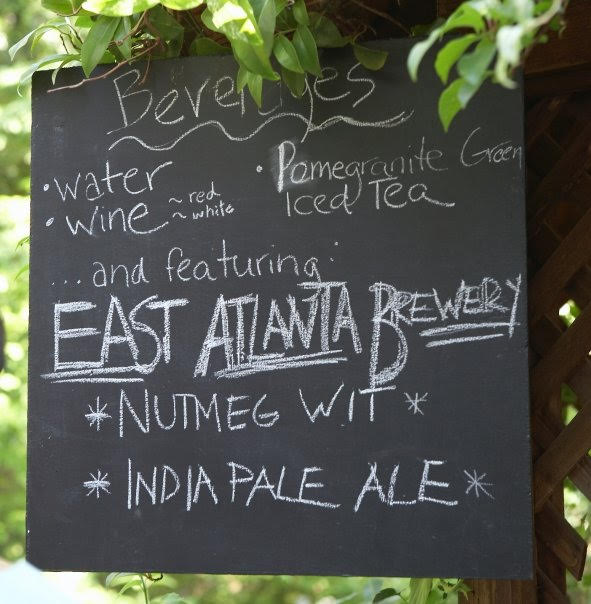 Beverages
• water
• wine ~ red
~ white
• Pomegranite Green
Iced Tea
... and featuring:
EAST ATLANTA BREWERY
* NUTMEG WIT *
* INDIA PALE ALE *